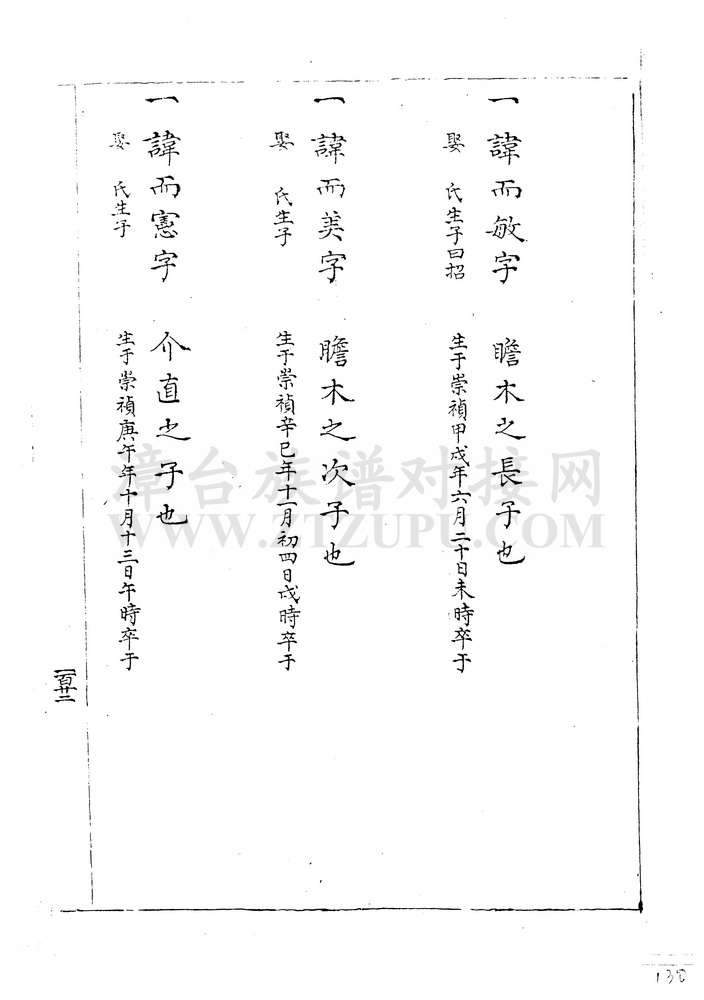 一諱而敏字　瞻木之長子也
生于崇禎甲戌年六月二十日未時卒于
娶　氏生子曰招
一諱而美字　瞻木之次子也
生于崇禎辛巳年十一月初四日戌時卒于
娶　氏生子
一諱而憲字　介直之子也
生于崇禎庚午年十月十三日午時卒于
娶　氏生子
一百廿二
章台族谱对接网
WWW.ZTZUPU.COM
138